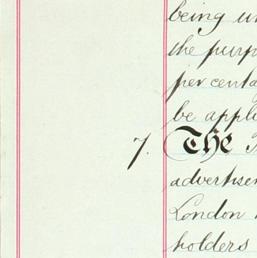 being un
the purp
per centa
be appli
7. The
advertisem
London
holders